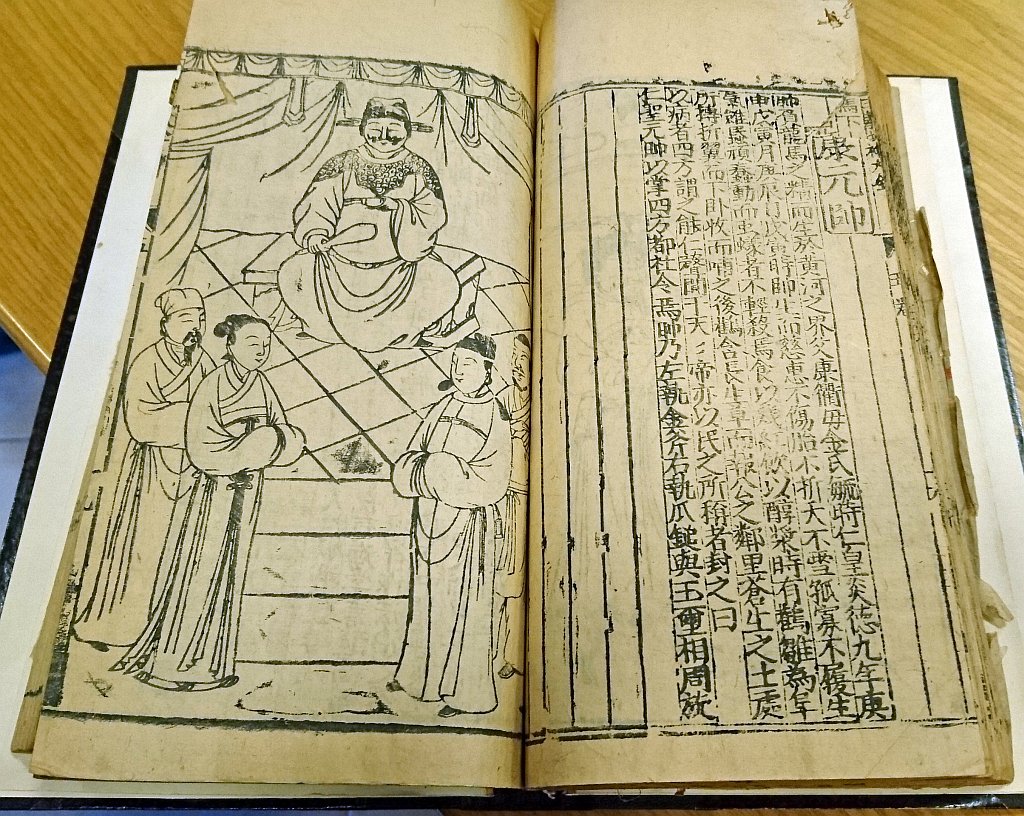 康元帥
帥負龍馬之精而生於黃河之界父康衢毋金氏毓時仁皇炎德九年庚
申戊寅月庚辰日戊寅時帥生而慈惠不傷胎不折夭不虐孤寡不履生
雖豚頑蠢動而虫蟻者不輕殺焉食以殘飲以醇漿時有鸛雛為隼
所搏折翼而下卧收而哺之後鸛含長生草而報公之鄰里蒼生之土處
以病者四方謂之能仁聲聞于天天帝亦以民之所稱者封之曰
仁聖元帥以掌四方都社令焉帥乃左執金斧右執瓜鎚與玉璽相周旋